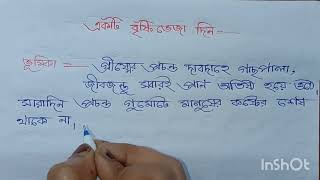 একটি বৃষ্টি ভেজা দিন —
ভূমিকা — গ্রীষ্মের প্রচন্ড দাবদাহে গাছপালা,
জীবজন্তু সবারই প্রান অতিষ্ঠ হয়ে ওঠে
সারাদিন প্রচন্ড গুমোটে মানুষের কষ্টের শেষ
থাকে না।
InShOt